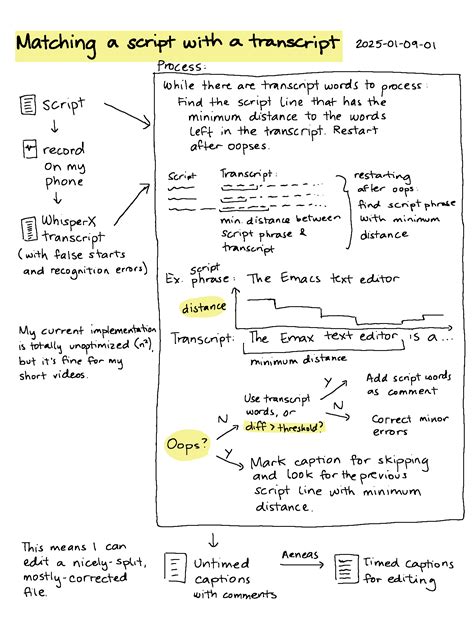 Matching a script with a transcript 2025-01-09-01
Process:
script
record
on my
phone
WhisperX
transcript
(with false starts
and recognition errors)
My current implementation
is totally unoptimized (n²),
but it's fine for my
short videos.
While there are transcript words to process:
Find the script line that has the
minimum distance to the words
left in the transcript. Restart
after oopses.
Script Transcript:
min. distance between
script phrase &
transcript
restarting
after oops
find script phrase
with minimum
distance
Ex. script
phrase: The Emacs text editor
distance
Transcript: The Emax text editor is a ...
minimum distance
Oops?
N
Use transcript
words, or
diff > threshold?
Y
Add script words
as comment
N
Correct minor
errors
Y
Mark caption for skipping
and look for the previous
script line with minimum
distance.
This means I can
edit a nicely-split,
mostly-corrected
file.
Untimed
captions
with comments
Aeneas
Timed captions
for editing